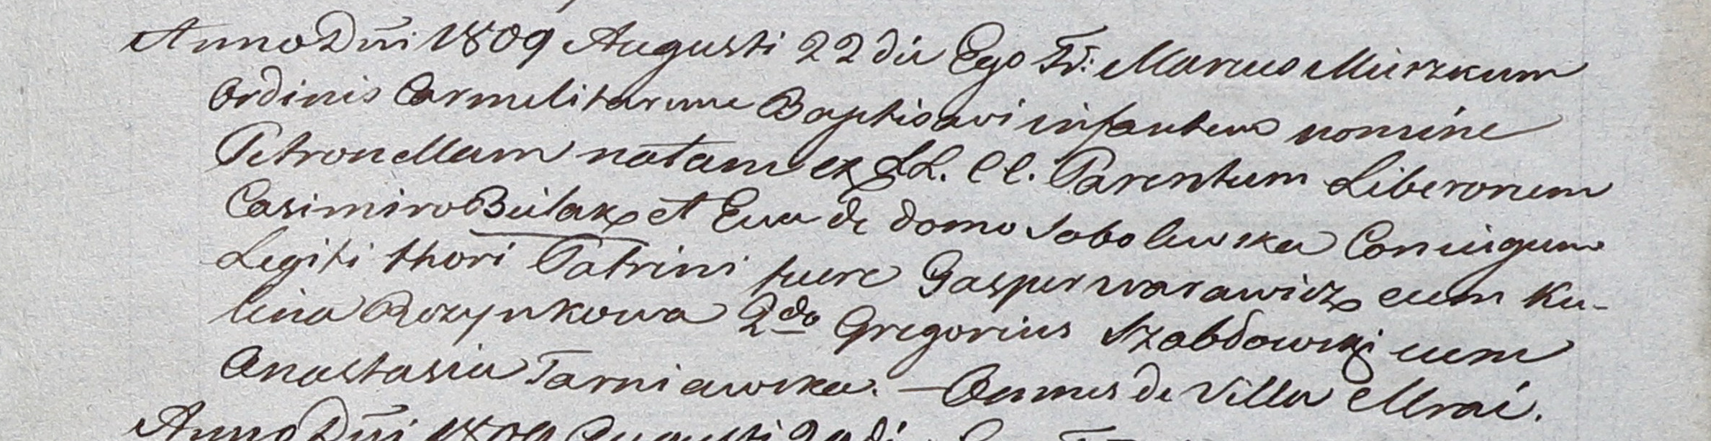 Anno Dñi 1809 Augusti 22 die Ego Fr: Marcus Mierzkum
Ordinis Carmelitarum Baptisavi infantem nomine
Petronellam natam ex LL. CC. Parentum Liberorum
Casimiro Bulak et Eva de domo Sobolewska Coniugum
Legiti thori Patrini fuere Gasper warawicz cum Ku-
lina Rozynkowa 2do Gregorius Szabdowski cum
Anastasia Tarniawska. — Omnes de Villa Mrai.
Anno Dñi 1809 Augusti